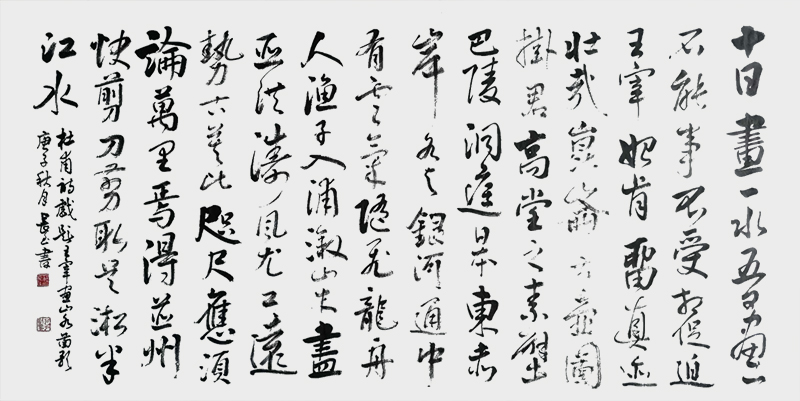 十日畫一水五日畫一
石能事不受相促迫
王宰始肯留真迹
壯哉崑崙方壺圖
掛君高堂之素壁
巴陵洞庭日本東赤
岸水与銀河通中
有雲氣隨飛龍舟
人漁子入浦溆山木盡
亞洪濤風尤工遠
勢古莫比咫尺應須
論萬里焉得並州
快剪刀剪取吳淞半
江水
杜甫詩戲題王宰畫山水圖歌
庚子秋月書